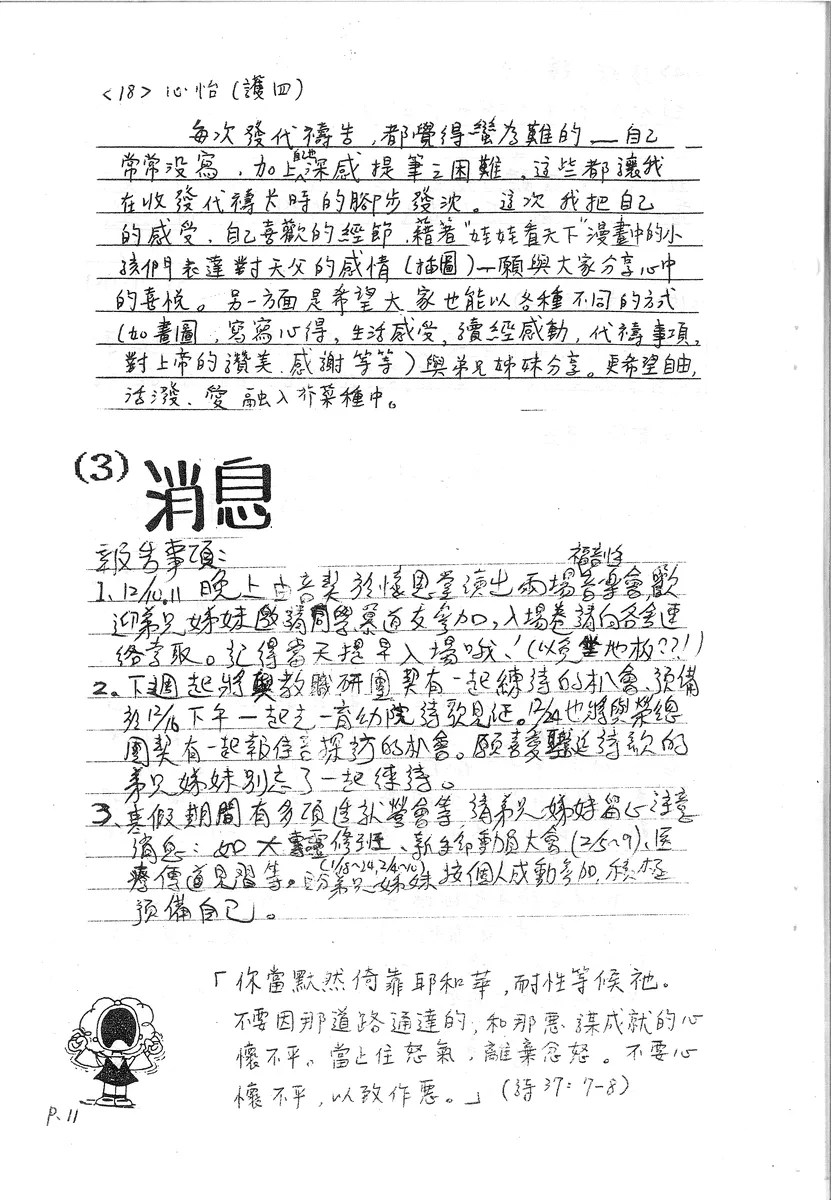 <18> 心怡(護四)
每次發代禱告,都覺得蠻為難的——自己
常常沒寫,加上自也深感提筆之困難。這些都讓我
在收發代禱卡時的腳步發沈。這次我把自己
的感受、自己喜歡的經節,藉著"娃娃看天下"漫畫中的小
孩們表達對天父的感情(插圖)—願與大家分享心中
的喜悅。另一方面是希望大家也能以各種不同的方式
(如畫圖,寫寫心得,生活感受,讀經感動,代禱事項,
對上帝的讚美、感謝等等)與弟兄姊妹分享。更希望自由,
活潑、愛融入芥菜種中。
(3) 消息
報告事項:
福音性
1、12/10.11 晚上由音契於懷恩堂演出兩場音樂會歡
迎弟兄姊妹邀請同學慕道友參加,入場卷請向各會連
絡拿取。記得當天提早入場哦!(以免坐地板??!)
2。下週起將與教職研團契有一起練詩的机會、預備
於12/16下午一起去一育幼院詩歌見証。12/24也將與榮總
團契有一起報佳音探訪的机會。願喜愛聖誕詩歌的
弟兄姊妹別忘了一起練詩。
3、寒假期間有多項 營會等 請弟兄姊妹留心注意
消息:如大專靈修班、 動員大會(2/5~9)、医
(1/18~24,2/4~10)
療傳道見習等。盼弟兄姊妹按個人感動參加,積極
預備自己。
「你當默然倚靠耶和華,耐性等候祂。
不要因那道路通達的,和那惡謀成就的心
懷不平。當止住怒氣,離棄忿怒。不要心
懷不平,以致作惡。」(詩37:7-8)
P.11